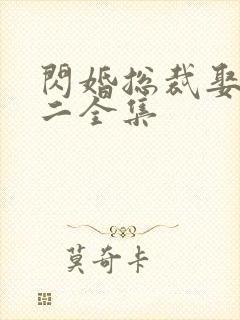 閃婚总裁娶
二全集
莫奇卡